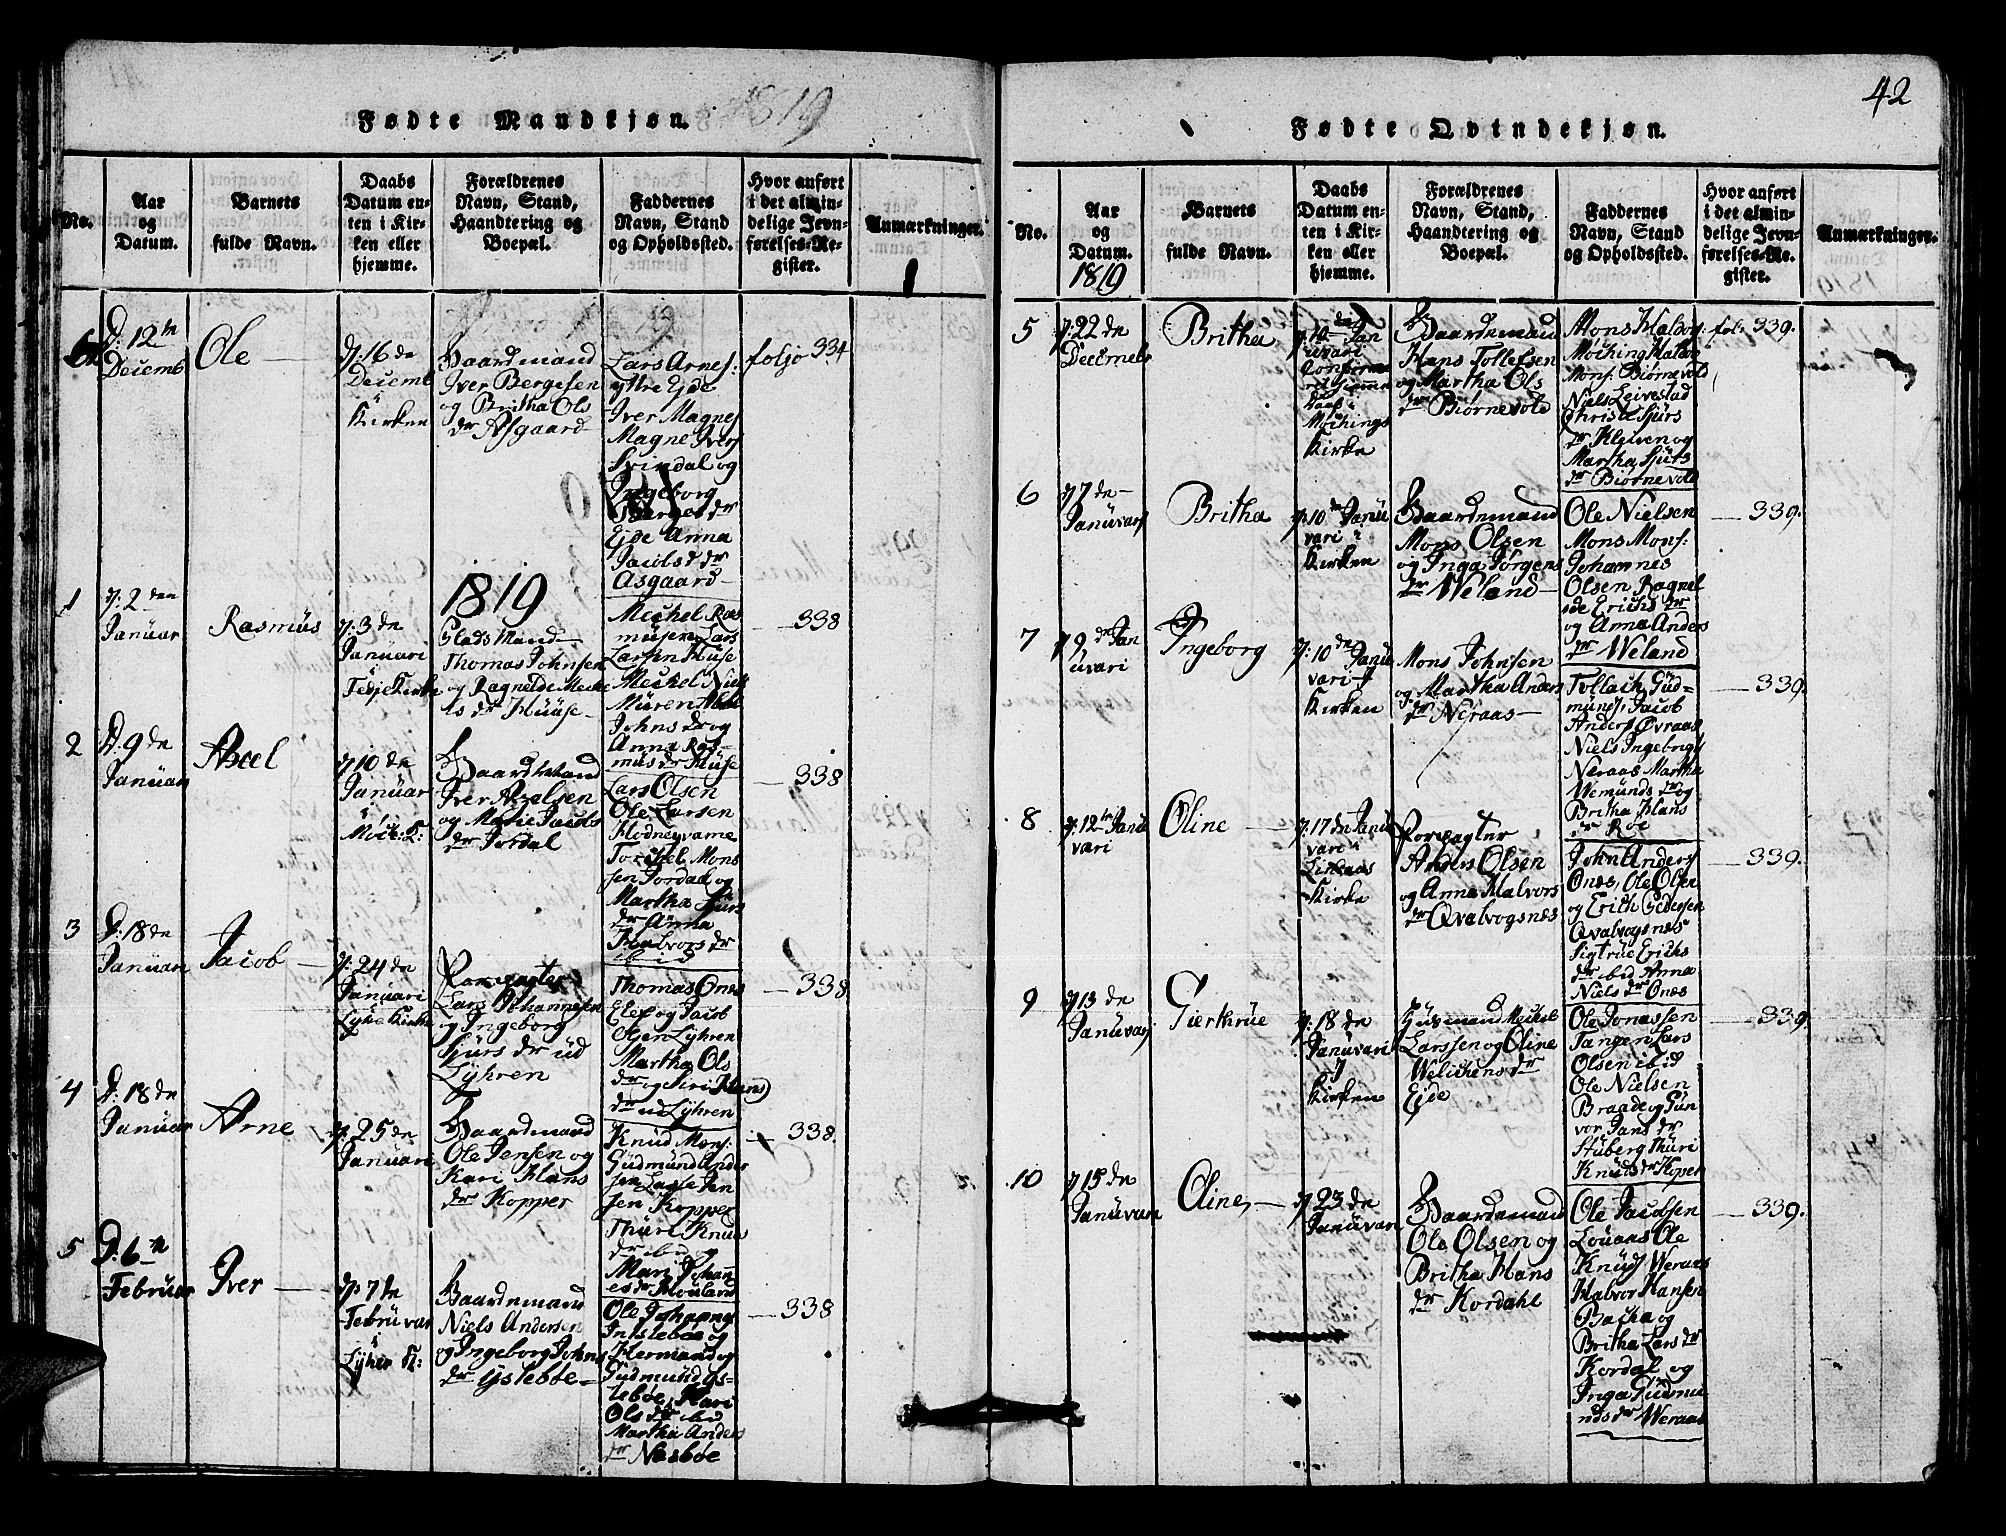 42
Fødte Mandkjøn. 1819
No.
Aar
og
Datum.
Barnets
fulde Navn.
Daabs
Datum en-
ten i Kir-
ken eller
hjemme.
Forældrenes
Navn, Stand,
Haandtering og
Boepæl.
Faddernes
Navn, Stand
og Opholdssted.
Hvor anført
i det almin-
delige Jevn-
førelses-Re-
gister.
Anmærkninger.
D: 12te
Decemb
Ole
d: 16 de
Decemb
i
Kirken
Gaardmand
Iver Bergesen
og Britha Ols
dr Asgaard
Lars Arnes:
yttre Ejde
Iver Magnes
Magne Ivers
Svindal og
Ingeborg
Berges dr
Ejde Anna
Jacobsd dr
Asgaard
foljo 334
1819
1
d: 2 den
Januar
Rasmus
d: 3 de
Januari
i
Fedje Kirke
Thomas Johnsen
og Ragnelde Meche
ls dr Huuse
Mechel Ras
musen Lars
Larsen Huse
Mechel Niels
Muren
Johns dr og
Anna Ras-
mus dr Huse
338
2
D: 9 de
Januar
Axel
d 10 de
Januar
i
Gaardmand
Iver Axelsen
og Marie Jacobs
dr Jordal
Lars Olsen
Ole Larsen
Torchel Mons
sen Jordal og
Martha Sjurs
dr Anna
Halvors dr
ibid
338
3
D: 18 de
Januar
Jacob
d: 24 de
Januari
Lyhre Kirke
Porpagter
Lars Johannesen
og Ingeborg
Sjurs dr ud
Lyhren
Thomas Ones
og Jacob
Olsen Lyhren
Martha Ols
dr og Siri Hans
dr ud Lyhren
338
4
D: 18 de
Januar
Arne
d: 25 de
Januari
Gaardemand
Ole Jensen og
Kari Hans
dr Kopper
Knud Mons:
Gudmund Ander
sen Lasse Jen
sen Kopper
Thuri Knud
dr ibid og
Mari Johan
es dr
338.
5
D: 6te
Februar
Iver
d: 7 de
Februvar
i
Lyhre K:
Gaardemand
Niels Andersen
og Ingeborg Johns
dr Ystebøe
Ole Johannes
Indstebøe og
Hermand og
Gudmund Ys-
tebøe, Kari
Ols dr ibid
Martha Anders
dr Næsbøe
338
Fødte Qvindekjøn.
No.
Aar
og
Datum.
1819
Barnets
fulde Navn.
Daabs
Datum en-
ten i Kir-
ken eller
hjemme.
Forældrenes
Navn, Stand,
Haandtering og
Boepæl.
Faddernes
Navn, Stand
og Opholdssted.
Hvor anført
i det almin-
delige Jevn-
førelses-Re-
gister.
Anmærkninger.
5
d: 22 de
Decembr
Britha
d: 10 den Jan
uvari
Confirme
ret hjemme
Daab i
Mochings
Kirke
Gaardemand
Hans Tollefsen
og Martha Ols
dr Biørnevold
Mons Halvor
Moching Halvor
Mons: Biørnevold
Niels Leivestad
Christi Sjurs
dr Kleiven og
Martha Sjurs
dr Biørnevold
fol: 339.
6
d 7 de
Januvari
Britha
d: 10 de Janu
vari i
Kirken
Gaardemand
Mons Olsen
og Inga Jørgens
dr Weland
Ole Nielsen
Mons Mons:
Johannes
Olsen Ragnel
de Erichs dr
og Anna Anders
dr Weland
339.
7
d 9 de Jan
uvari
Ingeborg
d: 10 de Janu
vari i
Kirken
Mons Johnsen
og Martha Anders
dr Neraas
Tollach Gud-
munds, Jacob
Anders Øvraas
Niels Ingebrigt
Neraas Martha
Wemunds dr og
Britha Hans
dr Roe
339.
8
d: 12te Janu
vari
Oline
d: 17 de Janu
vari i
Lindaas
Kirke
Porpagter
Anders Olsen
og Anna Halvors
dr Qvalvogsnes
John Anders
Ones, Ole Olsen
og Erich Pedersen
Qvalvogsnes
Sigtrue Erichs
dr ibid Anna
Niels dr Ones
339.
9
d 13 de
Januvari
Gierthrue
d: 18 de
Januvari
i
Kirken
Huusmand Mechel
Larssen og Oline
Welichens dr
Ejde
Ole Jonassen
Tangen Lars
Olsen ibid
Ole Nielsen
Braade og Gun
vor Jans dr
Stuberg Thuri
Knuds dr Koper
339.
10
d 15 de
Januvari
Oline
d 23 de
Januvari
Gaardemand
Ole Olsen og
Britha Hans
dr Kordahl
Ole Jacobsen
Louaas Ole
Knuds Weraas
Halvor Hansen
Bacha og
Britha Lars dr
Kordal og
Inga Gudmu
nds dr Weraas
339.